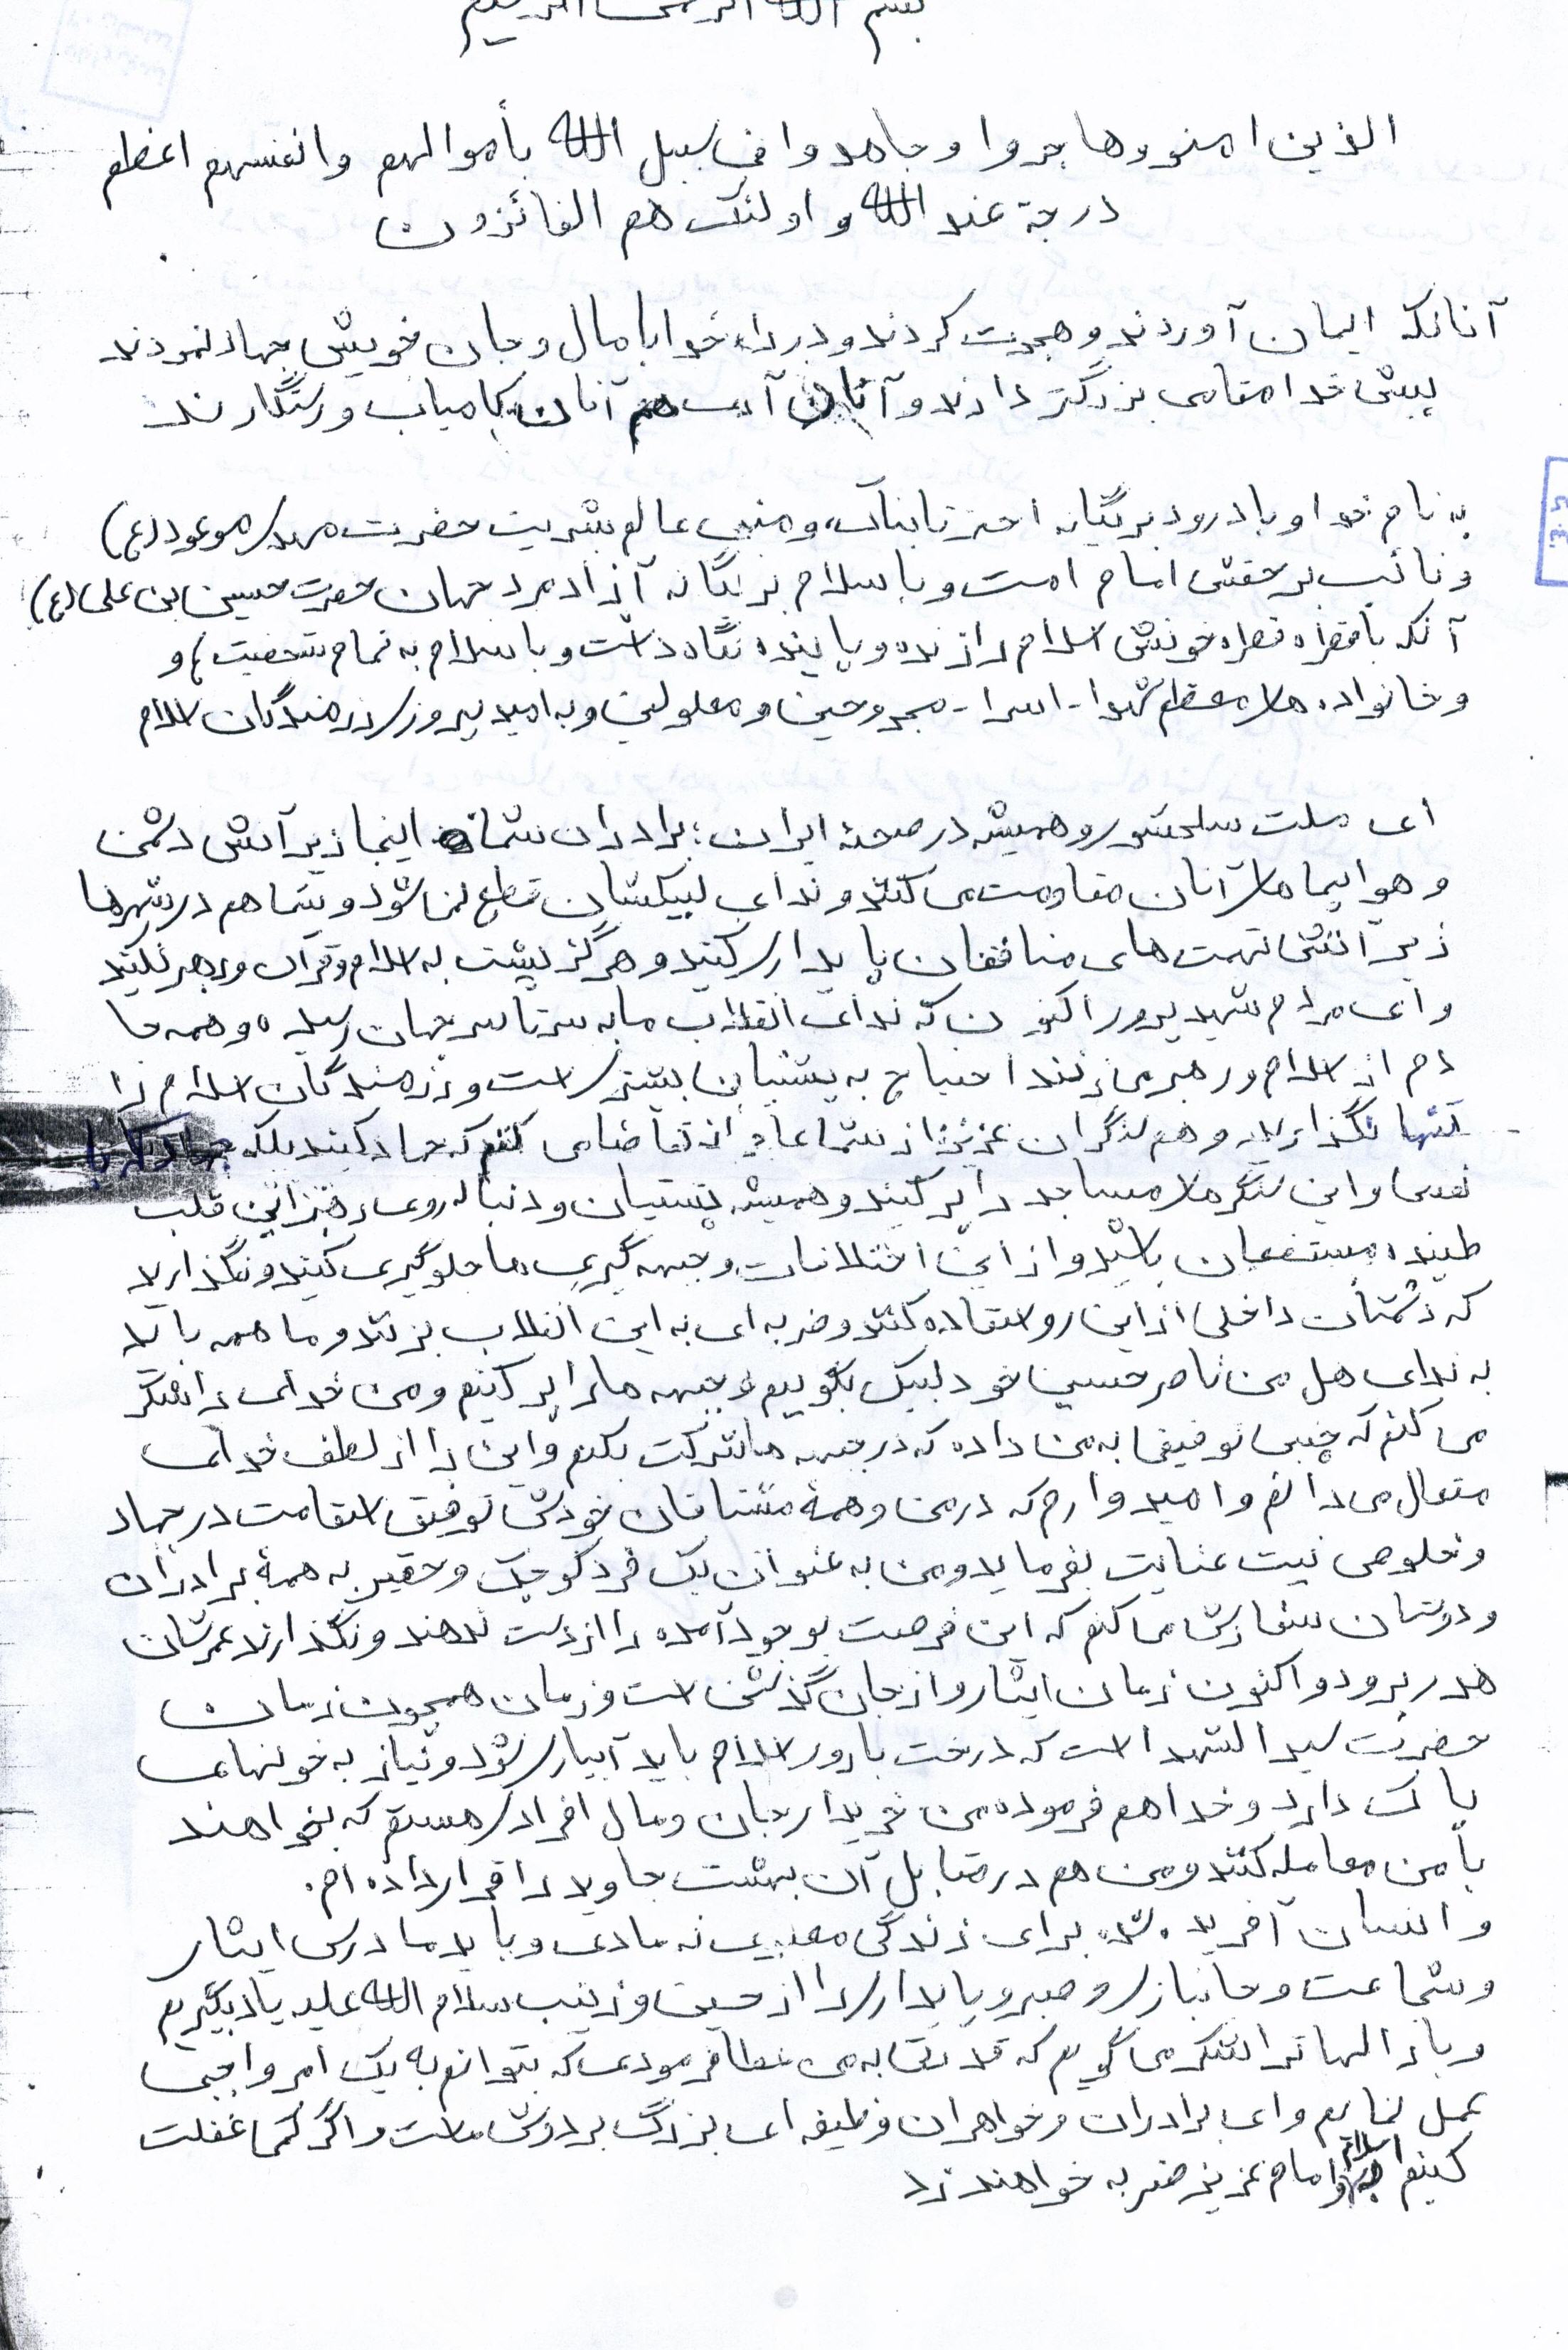 بسم الله الرحمن الرحیم
الذین امنو وهاجروا و جاهدوا فی سبیل الله بأموالهم وانفسهم اعظم
درجة عند الله و اولئک هم الفائزون
آنانکه ایمان آوردند و هجرت کردند و در راه خدا با مال و جان خویش جهاد نمودند
پیش خدا مقامی بزرگتر دارند و آنان کامیاب و رستگارند
به نام خدا و با درود بر یگانه اختر تابناک و منجی عالم بشریت حضرت مهدی موعود (ع)
و نائب بر حقش امام امت و با سلام بر یگانه آزاد مرد جهان حضرت حسین بن علی (ع)
آنکه با قطره قطره خونش اسلام را زنده و پاینده نگاه داشت و با سلام به تمام شخصیت ها و
و خانواده های معظم شهدا - اسرا - مجروحین و معلولین و به امید پیروزی رزمندگان اسلام
ای ملت سلحشور و همیشه در صحنه ایران؛ برادران شما اینجا زیر آتش دشمن
و هواپیماهای آنان مقاومت می کنند و ندای لبیکشان قطع نمی شود و شما هم در شهرها
زیر آتش تهمت های منافقان پایداری کنید و هرگز پشت به اسلام و قرآن و رهبر نکنید
و ای مردم شهید پرور اکنون که ندای انقلاب ما به سرتاسر جهان رسیده و همه جا
دم از اسلام و رهبر می زنند احتیاج به پشتیبانی بیشتری است و رزمندگان اسلام را
تنها نگذارید و هم سنگران عزیز از شما عاجزانه تقاضا می کنم که جهاد کنید بلکه جهاد
نفس و این سنگرهای مساجد را پر کنید و همیشه پشتیبان و دنباله روی رهبر این قلب
طپنده مستضعفان باشید و از این اختلافات و جبهه گیری ها جلوگیری کنید و نگذارید
که دشمنان داخلی از این رو استفاده کنند و ضربه ای به این انقلاب بزنند و ما همه باید
به ندای هل من ناصر حسین خود لبیک بگوییم و جبهه ها را پر کنیم و من خدای را شکر
می کنم که چنین توفیقی به من داده که در جبهه ها شرکت بکنم و این را از لطف خدای
متعال می دانم و امیدوارم که در من و همهٔ مشتاقان خودش توفیق استقامت در جهاد
و خلوص نیت عنایت بفرماید و من به عنوان یک فرد کوچک و حقیر به همهٔ برادران
و دوستان سفارش می کنم که این فرصت بوجود آمده را از دست ندهند و نگذارند عمرشان
هدر برود و اکنون زمان ایثار و از جان گذشتن است و زمان همچون زمان
حضرت سید الشهدا است که درخت بارور اسلام باید آبیاری شود و نیاز به خونهای
پاک دارد و خدا هم فرموده من خریدار جان و مال افرادی هستم که بخواهند
با من معامله کنند و من هم در مقابل آن بهشت جاوید را قرار داده ام.
و انسان آفریده شده برای زندگی معنوی نه مادی و باید ما درس ایثار
و شجاعت و جانبازی و صبر و پایداری را از حسین و زینب سلام الله علیه یاد بگیریم
و بار الها ترا شکر می گویم که قدرتی به من عطا فرمودی که بتوانم به یک امر واجبی
عمل نمایم و ای برادران و خواهران وظیفه ای بزرگ بر دوش ماست و اگر کمی غفلت
کنیم به اسلام و امام عزیز ضربه خواهند زد